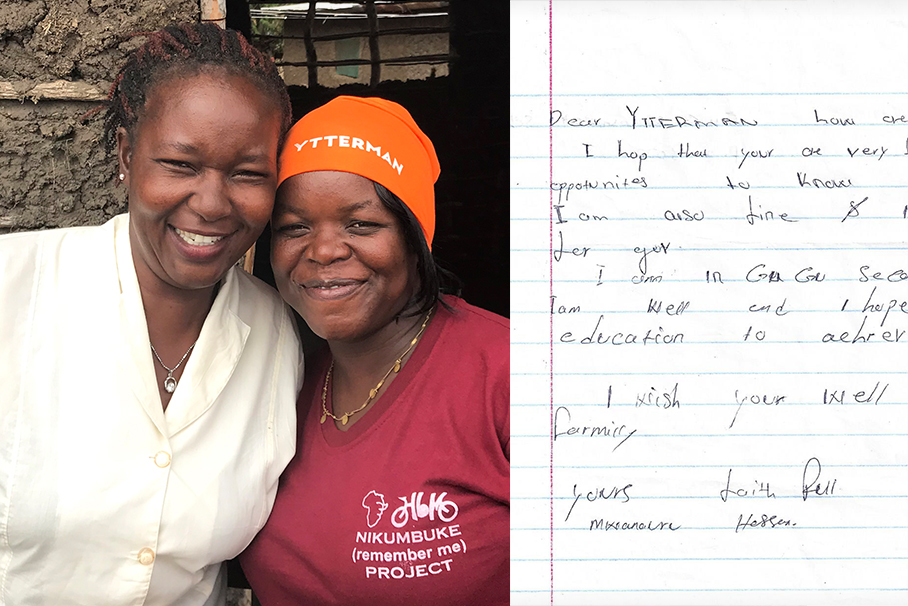 YTTERMAN
NIKUMBUKE
(remember me)
PROJECT
Dear YTTERMAN how are
I hop that your are very
oppotunites to know
I am also fine &
for you.
I am in Gu Gu Seco
I am well and I hope
education to achiev
I wish your well
farmily
yours faith full